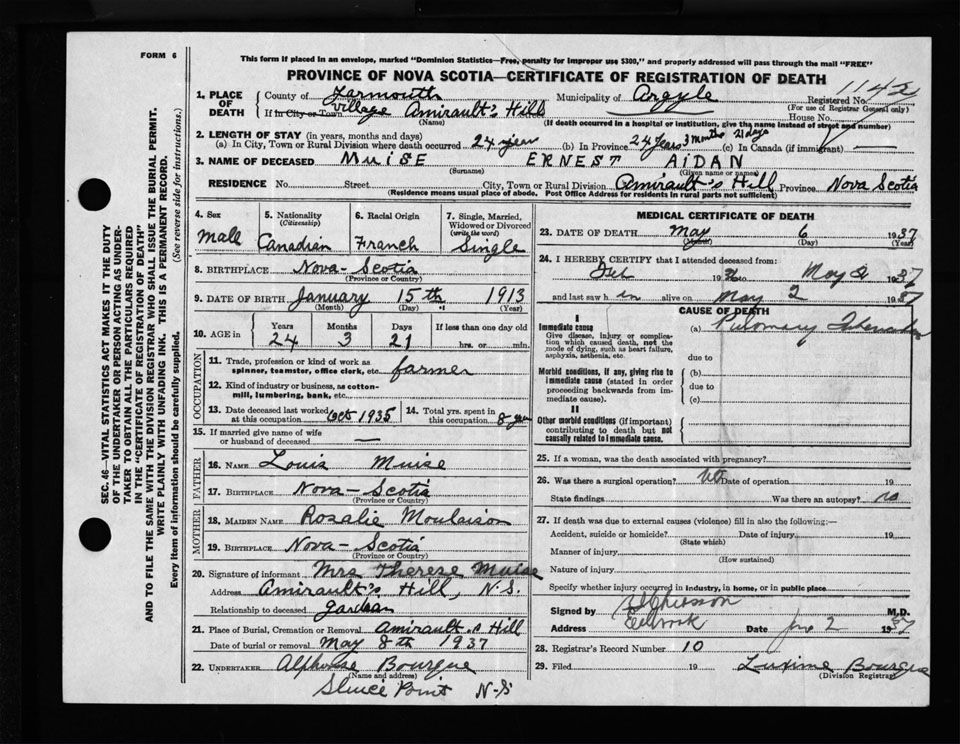 FORM 6
This form if placed in an envelope, marked "Dominion Statistics—Free, penalty for improper use $300," and properly addressed will pass through the mail "FREE"
PROVINCE OF NOVA SCOTIA—CERTIFICATE OF REGISTRATION OF DEATH
1142
1. PLACE OF DEATH
County of Yarmouth Municipality of Argyle Registered No.
(For use of Registrar General only)
If in City or Town Village Amirault's Hill House No.
(Name) (If death occurred in a hospital or institution, give the name instead of street and number)
2. LENGTH OF STAY (in years, months and days)
(a) In City, Town or Rural Division where death occurred 24 years (b) In Province 24 Years 3 months 21 days (c) In Canada (if immigrant) —
3. NAME OF DECEASED MUISE ERNEST AIDAN
(Surname) (Given name or names)
RESIDENCE No. Street City, Town or Rural Division Amirault's Hill Province Nova Scotia
(Residence means usual place of abode. Post Office Address for residents in rural parts not sufficient)
4. Sex Male
5. Nationality (Citizenship) Canadian
6. Racial Origin French
7. Single, Married, Widowed or Divorced (write the word) Single
8. BIRTHPLACE Nova-Scotia
(Province or Country)
9. DATE OF BIRTH January 15th 1913
(Month) (Day) (Year)
10. AGE in Years 24 Months 3 Days 21 If less than one day old hrs. or min.
OCCUPATION
11. Trade, profession or kind of work as spinner, teamster, office clerk, etc. farmer
12. Kind of industry or business, as cotton-mill, lumbering, bank, etc.
13. Date deceased last worked at this occupation Oct 1935
14. Total yrs. spent in this occupation 8 years
15. If married give name of wife or husband of deceased —
FATHER
16. NAME Louis Muise
17. BIRTHPLACE Nova-Scotia
(Province or Country)
MOTHER
18. MAIDEN NAME Rozalie Moulaison
19. BIRTHPLACE Nova-Scotia
(Province or Country)
20. Signature of informant Mrs Therese Muise
Address Amirault's Hill, N.S.
Relationship to deceased
21. Place of Burial, Cremation or Removal Amirault's Hill
Date of burial or removal May 8th 1937
22. UNDERTAKER Alphonse Bourque
(Name and address)
Sluice Point N-S
MEDICAL CERTIFICATE OF DEATH
23. DATE OF DEATH May 6 1937
(Month) (Day) (Year)
24. I HEREBY CERTIFY that I attended deceased from:
1936 to May 1937
and last saw him alive on May 2 1937
CAUSE OF DEATH
I
Immediate cause
Give disease, injury or complication which caused death, not the mode of dying, such as heart failure, asphyxia, asthenia, etc.
(a) Pulmonary Tuberculosis
due to
Morbid conditions, if any, giving rise to immediate cause (stated in order proceeding backwards from immediate cause).
(b)
due to
(c)
II
Other morbid conditions (if important) contributing to death but not causally related to immediate cause.
25. If a woman, was the death associated with pregnancy?
26. Was there a surgical operation? No Date of operation 19
State findings Was there an autopsy? no
27. If death was due to external causes (violence) fill in also the following:—
Accident, suicide or homicide? Date of injury 19
(State which)
Manner of injury
(How sustained)
Nature of injury
Specify whether injury occurred in industry, in home, or in public place
Signed by M.D.
Address Date June 2 1937
28. Registrar's Record Number 10
29. Filed 19 Bourque
(Division Registrar)
SEC. 46—VITAL STATISTICS ACT MAKES IT THE DUTY
OF THE UNDERTAKER OR PERSON ACTING AS UNDER-
TAKER TO OBTAIN ALL THE PARTICULARS REQUIRED
IN THE "CERTIFICATE OF REGISTRATION OF DEATH"
AND TO FILE THE SAME WITH THE DIVISION REGISTRAR WHO SHALL ISSUE THE BURIAL PERMIT.
WRITE PLAINLY WITH UNFADING INK. THIS IS A PERMANENT RECORD.
Every item of information should be carefully supplied. (See reverse side for instructions.)